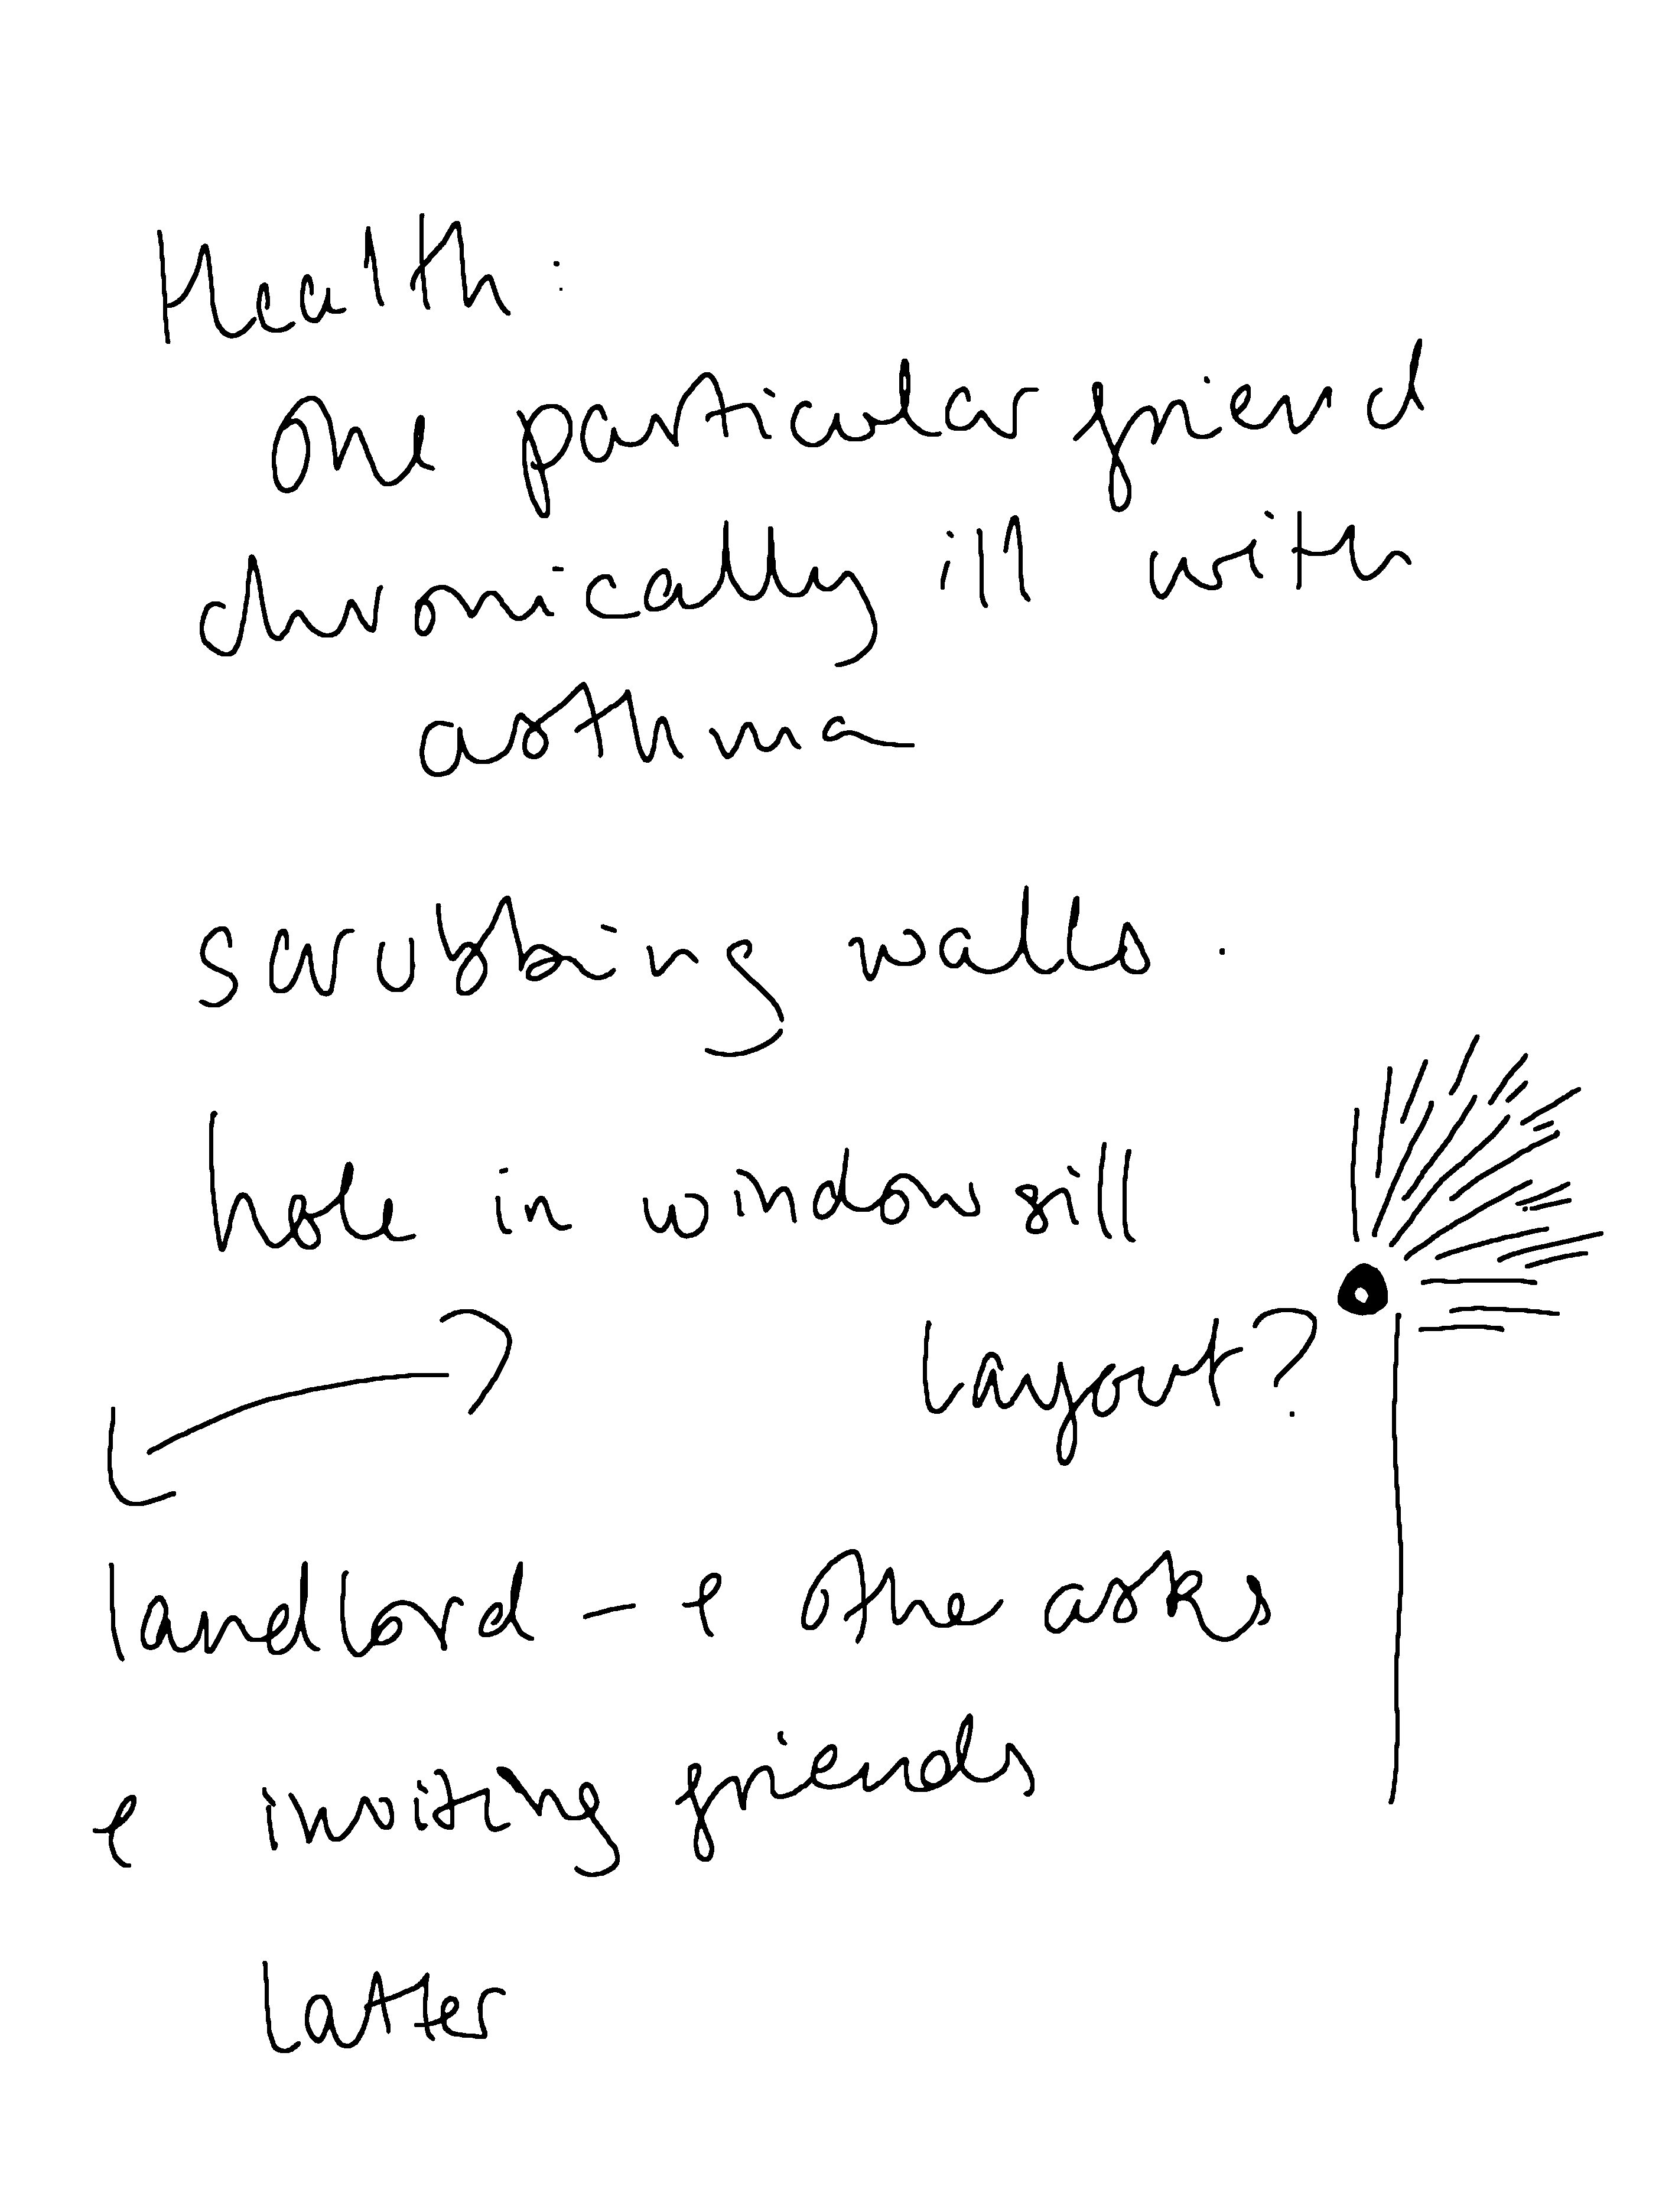 Health:
One particular friend
chronically ill with
asthma
scrubbing walls.
hole in windowsill
Layout?
landlord – & the asks
& inviting friends
Latter